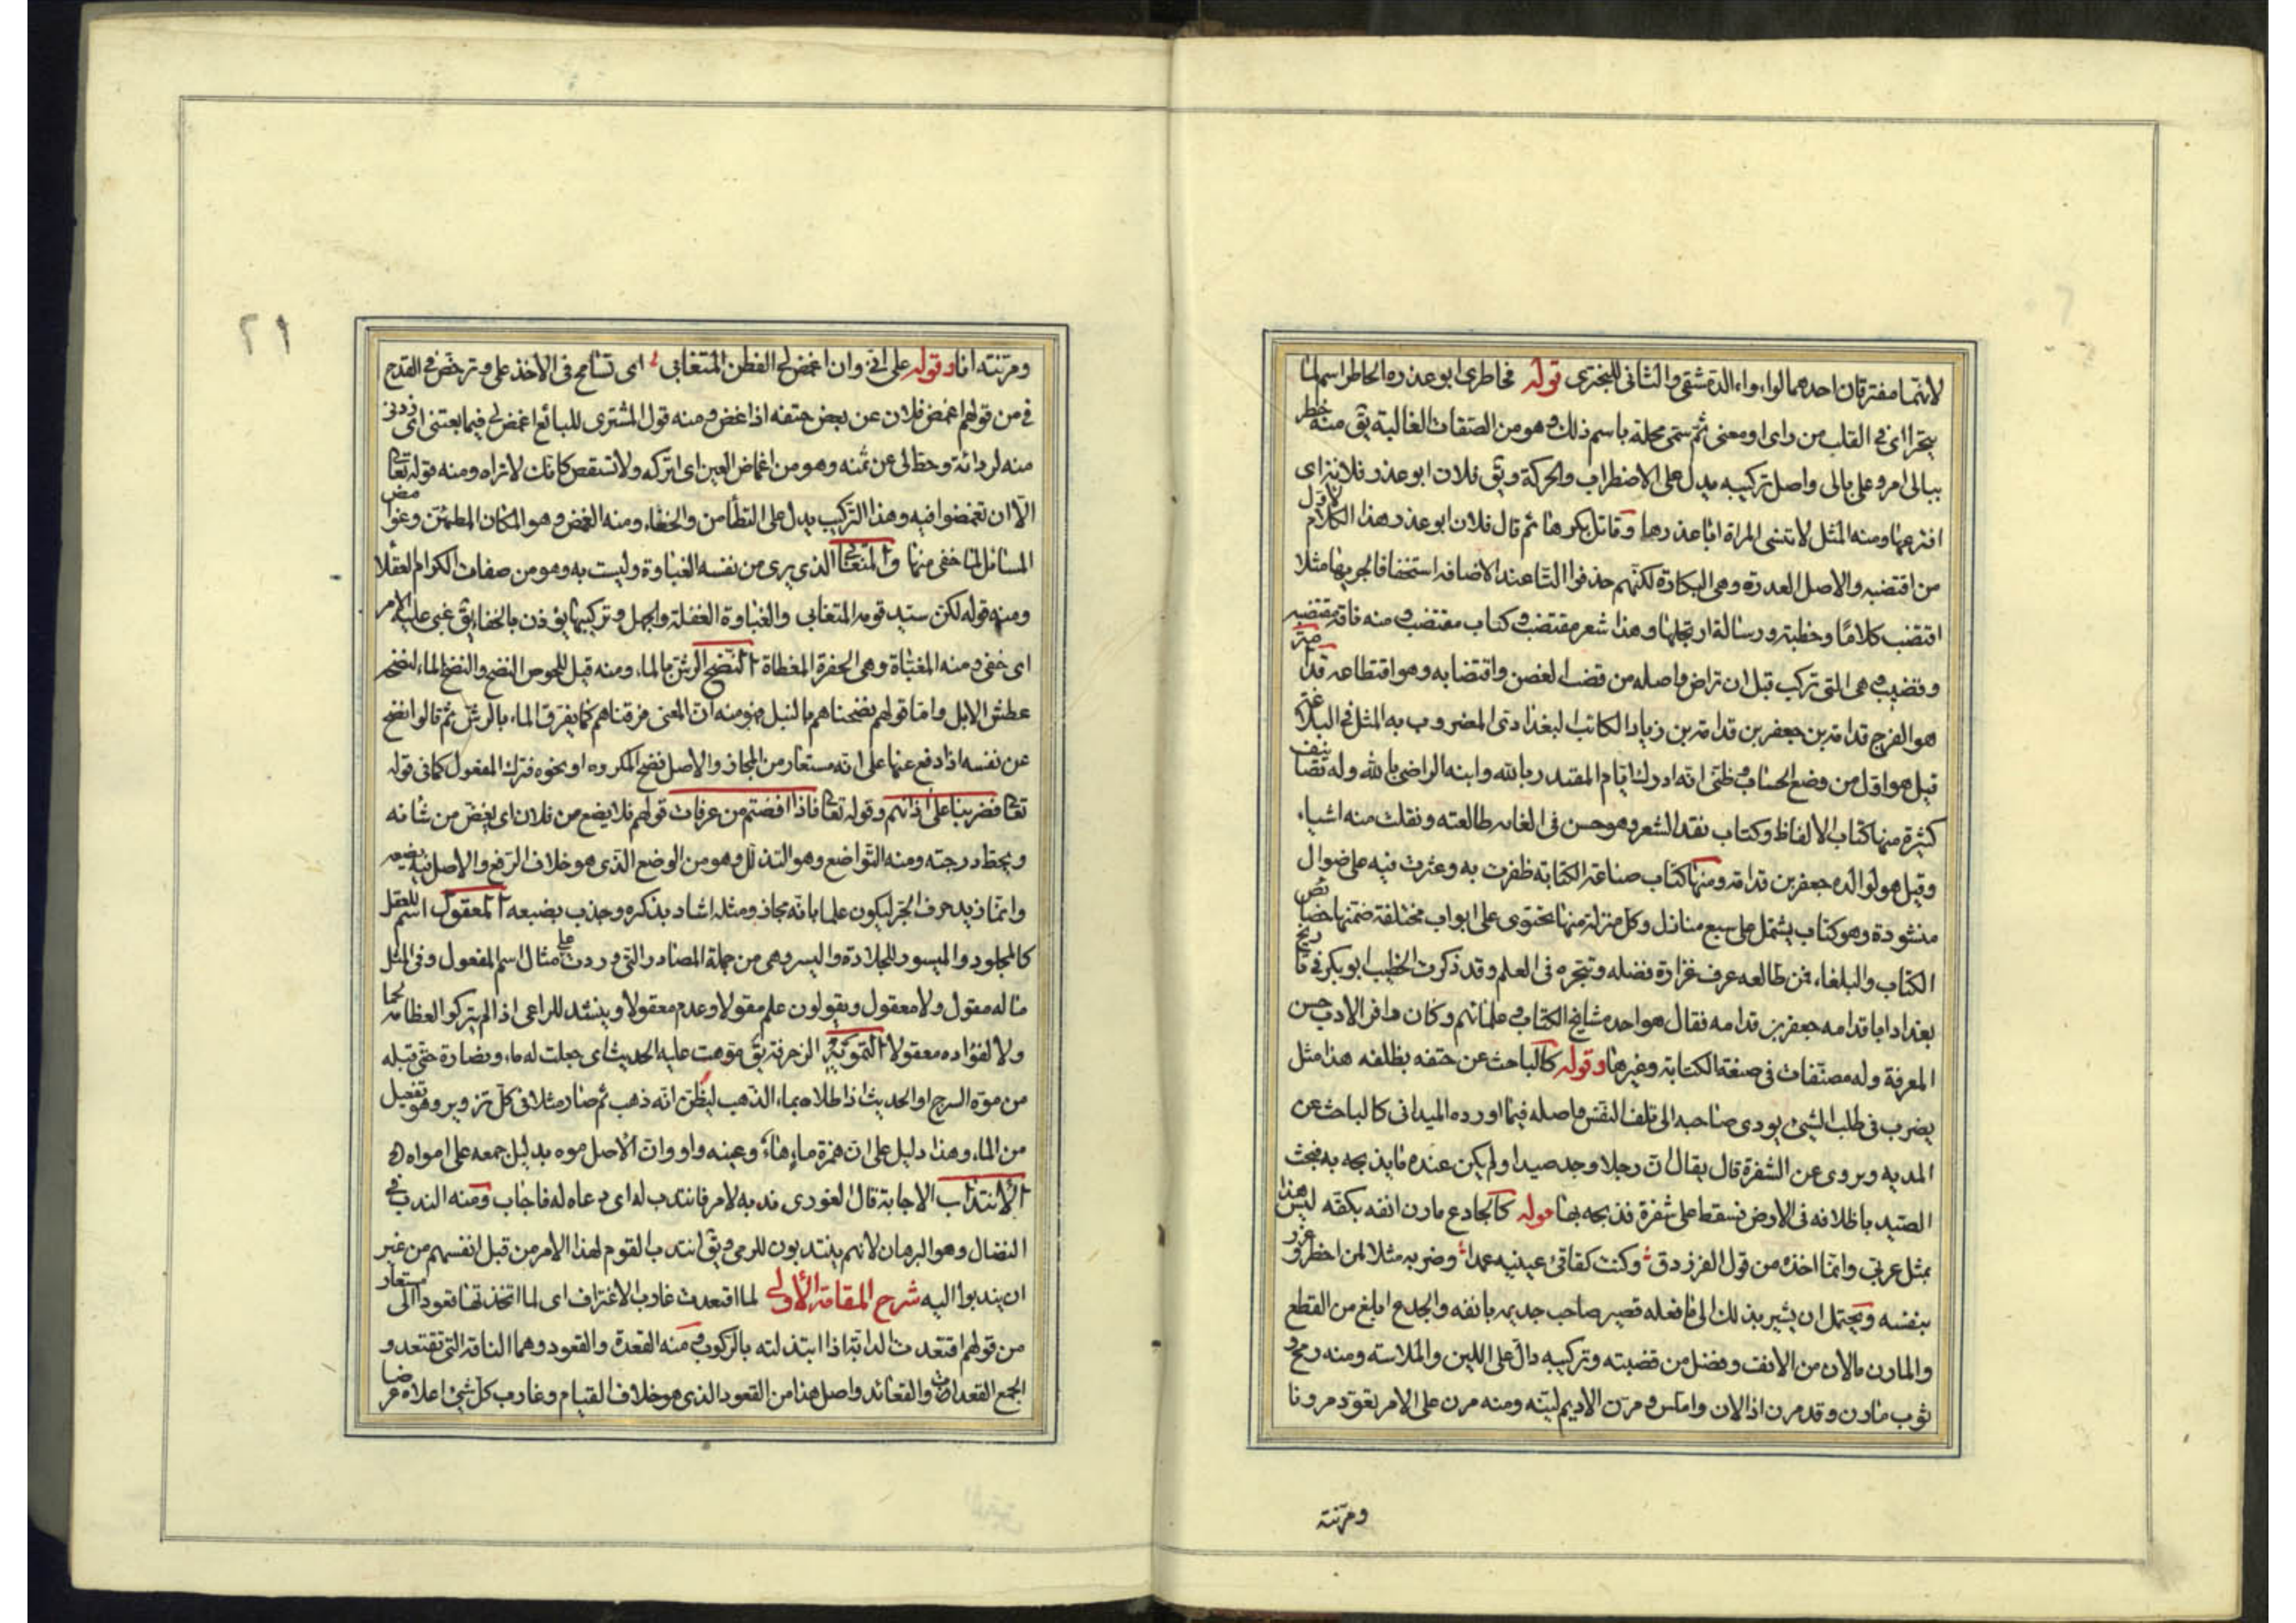 لانهما مفترقان احدهما لواواء الدمشقي والثاني للبحتري قوله فخاطري ابو عذره الخاطر اسم لما
يتحرك في القلب من راى او معنى ثم سمى محله باسم ذلك وهو من الصفات الغالبة يق منه خطر
ببالى امر وعلى بالى واصل تركيبه يدل على الاضطراب والحركة ويق فلان ابو عذر فلانة اى
افترعها ومنه المثل لا تنسى المراة ابا عذرها وقاتل بكرها ثم قال فلان ابو عذر هذا الكلام لاول
من اقتضبه والاصل العذرة وهى البكارة لكنهم حذفوا التا عند الاضافة استخفافا لجريها مثلا
اقتضب كلامًا وخطبة ورسالة ارتجلها وهذا شعر مقتضب وكتاب مقتضب ومنه ناقة مقتضبة
وقضيب وهى التى تركب قبل ان تراض واصله من قضب الغصن واقتضابه وهو اقتطاعه قدامة
هو الفرج قدامة بن جعفر بن قدامة بن زياد الكاتب البغدادى المضروب به المثل فى البلاغة
قيل هو اول من وضع الحساب وظنى انه ادرك ايام المقتدر بالله وابنه الراضى بالله وله تصانيف
كثيرة منها كتاب الالفاظ وكتاب نقد الشعر وهو حسن فى الغاية طالعته ونقلت منه اشياء
وقيل هو لوالده جعفر بن قدامة ومنها كتاب صناعة الكتابة ظفرت به وعثرت فيه على ضوال
منشودة وهو كتاب يشتمل على سبع منازل وكل منزلة منها تحتوى على ابواب مختلفة ضمنها خصائص
الكتاب والبلغاء فمن طالعه عرف غزارة فضله وتبحره فى العلم وقد ذكر الخطيب ابو بكر فى تاريخ
بغداد ابا قدامه جعفر بن قدامه فقال هو احد مشايخ الكتاب وعلمائهم وكان وافر الادب حسن
المعرفة وله مصنفات فى صنعة الكتابة وغيرها وقوله كالباحث عن حتفه بظلفه هذا مثل
يضرب فى طلب الشئ يودى صاحبه الى تلف النفس واصله فيما اورده الميدانى كالباحث عن
المديه ويروى عن الشفرة قال يقال ان رجلا وجد صيدا ولم يكن عنده ما يذبحه به فبحث
الصيد باظلافه فى الارض فسقط على شفرة فذبحه بها قوله كالجادع مارن انفه بكفه ليس هذا
بمثل عربى وانما اخذه من قول الفرزدق وكنت كفاقئ عينيه عمدا وضربه مثلا لمن اخطر وغرر
بنفسه ويحتمل ان يشير بذلك الى ما فعله قصير صاحب جذيمه بانفه والجدع ابلغ من القطع
والمارن مالان من الانف وفضل من قصبته وتركيبه دال على اللين والملاسة ومنه رمح و
ثوب مارن وقد مرن اذا لان واملس ومرن الاديم لينه ومنه مرن على الامر تعود مرونا
ومرنته
ومرنته انا وقوله على انى وان اغمض لى الفطن المتغابى اى تسامح فى الاخذ على وترخص فى القدح
فى من قولهم اغمض فلان عن بعض حقه اذا غض ومنه قول المشترى للبائع اغمض لى فيما بعتنى اى زدنى
منه لردائة وحط لى عن ثمنه وهو من اغماض العين اى اتركه ولا تستقص كانك لا تراه ومنه قوله تعالى
الا ان تغمضوا فيه وهذا التركيب يدل على التطامن والخفاء ومنه الغمض وهو المكان المطمئن وغوامض
المسائل لما خفى منها والمتغابى الذى يرى من نفسه الغباوة وليست به وهو من صفات الكرام العقلا
ومنه قوله لكن سيد قومه المتغابى والغباوة الغفلة والجهل وتركيبها يؤذن بالخفاء يق غبى عليه الامر
اى خفى ومنه المغباة وهى الحفرة المغطاة النضح الرش بالماء ومنه قيل للحوض النضح والنضيح الماء لنضحه
عطش الابل واما قولهم نضحناهم بالنبل فهو منه لان المعنى فرقناهم كما يفرق الماء بالرش ثم قالوا نضح
عن نفسه اذا دفع عنها على انه مستعار من المجاز والاصل نضح المكروه او نحوه فترك المفعول كما فى قوله
تعا فضربنا على اذانهم وقوله تعا فاذا افضتم من عرفات قولهم فلا يضع من فلان اى يغض من شانه
ويحط درجته ومنه التواضع وهو التذلل وهو من الوضع الذى هو خلاف الرفع والاصل فيه يضعه
وانما زيد حرف الجر ليكون علما بانه مجاز ومثله اشاد بذكره وجذب بضبعه المعقول اسم للعقل
كالمجلود والميسور للجلادة واليسر وهى من جملة المصادر التى وردت على مثال اسم المفعول وفى المثل
ماله مقول ولا معقول ويقولون علم مقولا وعدم معقولا وينشد للراعى اذا لم يتركوا العظامه لحما
ولا لفؤاده معقولا التمويه الزخرفة يق موهت عليه الحديث اى جعلت له ماء ونضارة حتى قبله
من موه السرج او الحديث اذا طلاه بماء الذهب ليظن انه ذهب ثم صار مثلا فى كل تزوير وهو تفعيل
من الماء وهذا دليل على ان همزة ماء هاء وعينه واو وان الاصل موه بدليل جمعه على امواه
الانتداب الاجابة قال الغورى ندبه لامر فانتدب له اى دعاه له فاجاب ومنه الندب فى
النضال وهو الرهان لانهم ينتدبون للرمى ويق انتدب القوم لهذا الامر من قبل انفسهم من غير
ان يندبوا اليه شرح المقامة الاولى لما اقتعدت غارب الاغتراب اى لما اتخذتها قعودا الى مستعار
من قولهم اقتعدت الدابة اذا ابتذلته بالركوب ومنه القعدة والقعود وهما الناقة التى تقتعد و
الجمع القعدات والقعائد واصل هذا من القعود الذى هو خلاف القيام وغارب كل شئ اعلاه
٢١